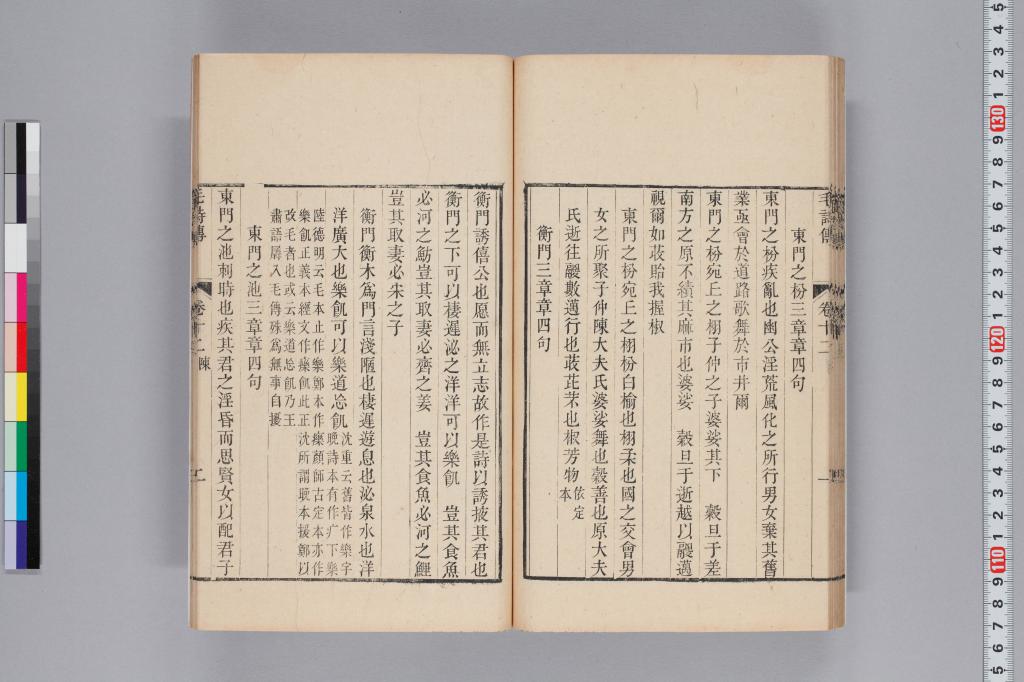 毛詩傳
卷十二
一
東門之枌三章章四句
東門之枌疾亂也幽公淫荒風化之所行男女棄其舊
業亟會於道路歌舞於市井爾
東門之枌宛丘之栩子仲之子婆娑其下　穀旦于差
南方之原不績其麻市也婆娑　穀旦于逝越以鬷邁
視爾如荍貽我握椒
東門之枌宛丘之栩枌白榆也栩杼也國之交會男
女之所聚子仲陳大夫氏婆娑舞也穀善也原大夫
氏逝往鬷數邁行也荍芘芣也椒芳物依定
本
衡門三章章四句
衡門誘僖公也愿而無立志故作是詩以誘掖其君也
衡門之下可以棲遲泌之洋洋可以樂飢　豈其食魚
必河之魴豈其取妻必齊之姜　豈其食魚必河之鯉
豈其取妻必宋之子
衡門衡木爲門言淺陋也棲遲遊息也泌泉水也洋
洋廣大也樂飢可以樂道忘飢沈重云舊皆作樂字
晚詩本有作疒下樂
陸德明云毛本止作樂鄭本作𤻲顏師古定本亦作
樂飢正義本經文作𤻲飢此正沈所謂晚本援鄭以
改毛者也或云樂道忘飢乃王
肅語羼入毛傳殊爲無事自擾
東門之池三章章四句
東門之池刺時也疾其君之淫昏而思賢女以配君子
毛詩傳
卷十二
陳
二